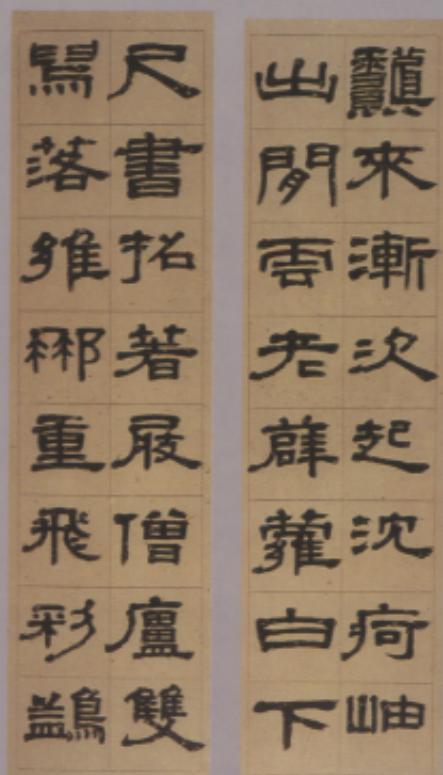 來漸次起沈疴岫
出閒雲老薜蘿白下
尺書招著屐僧廬雙
舄落維重飛彩鷁